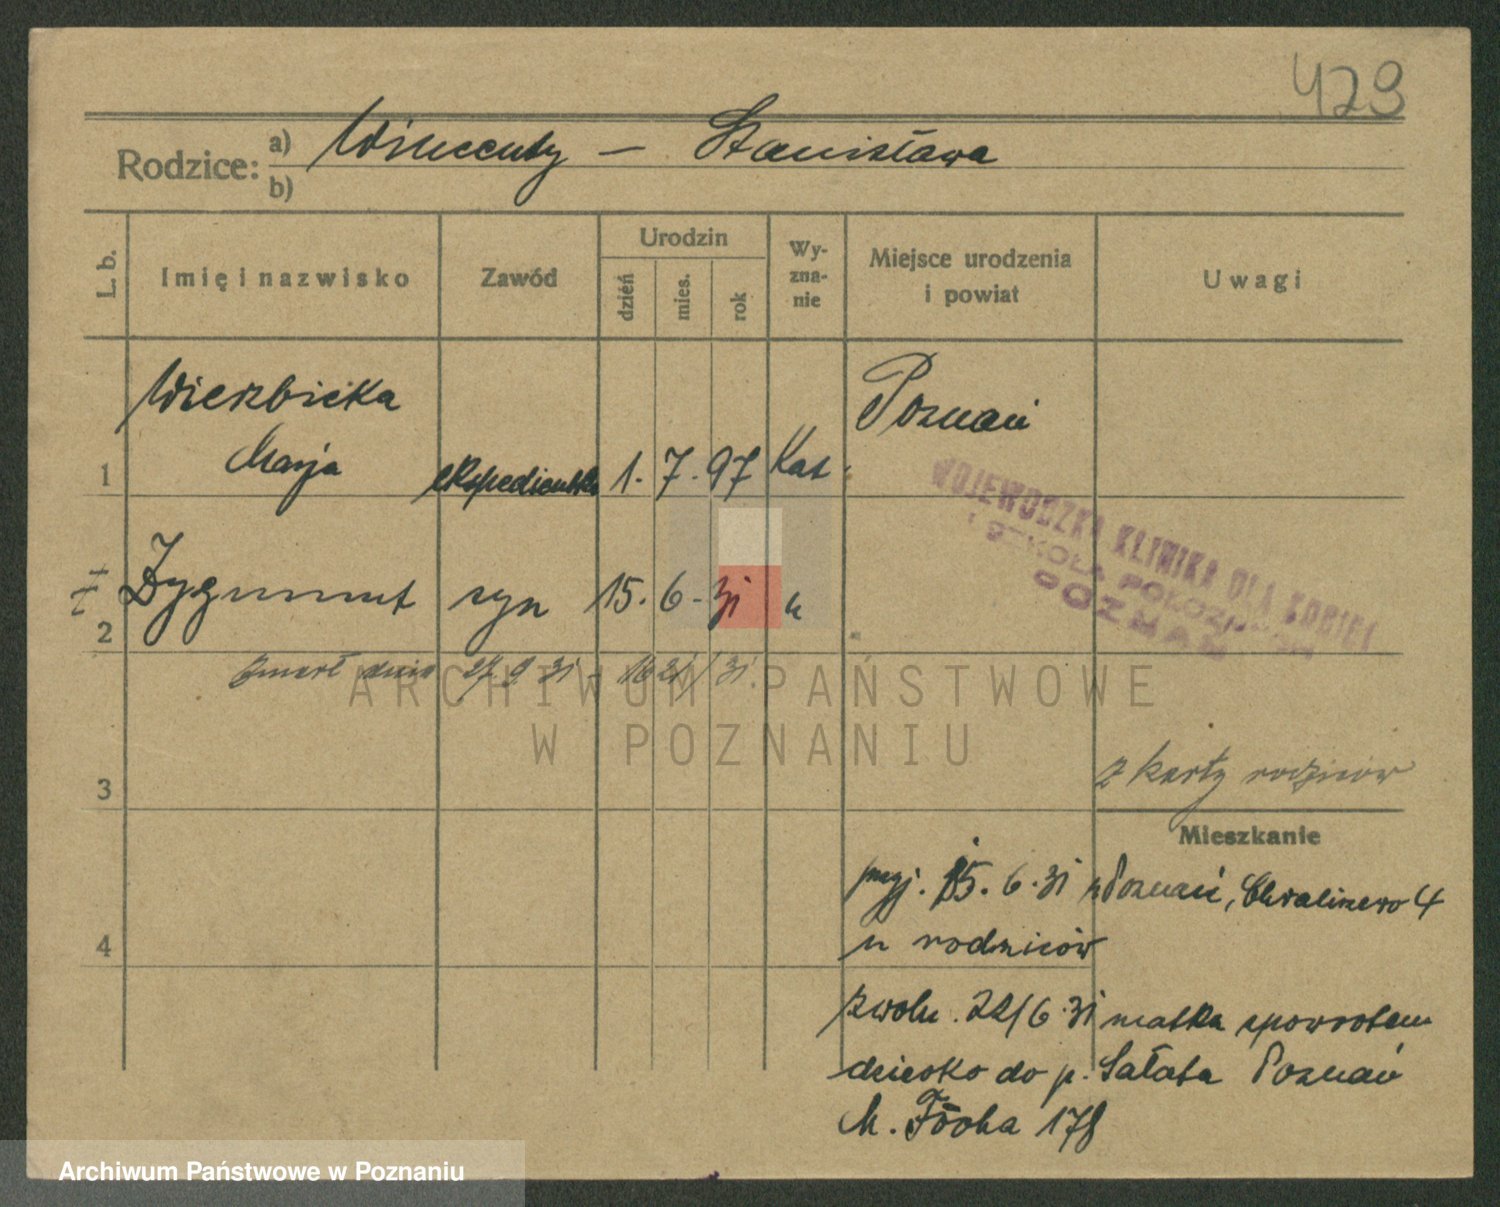 429
Rodzice: a) Wincenty — Stanisława
b)
L. b. Imię i nazwisko Zawód Urodzin dzień mies. rok Wyznanie Miejsce urodzenia i powiat Uwagi
Wierzbicka Poznań
1 Marja ekspedientka 1. 7. 97 Kat.
WOJEWÓDZKA KLINIKA DLA KOBIET
I SZKOŁA POŁOŻNYCH
POZNAŃ
2 Zygmunt syn 15. 6 - 31 "
zmarł dnia 27. 9. 31
ARCHIWUM PAŃSTWOWE
W POZNANIU
3 z karty rodziców
Mieszkanie
przyj. 15. 6. 31 z Poznań, Chwaliszewo 4
4 u rodziców
zwoln. 22/6 31 matka spowrotem
dziecko do p. Sałata Poznań
M. Focha 178
Archiwum Państwowe w Poznaniu